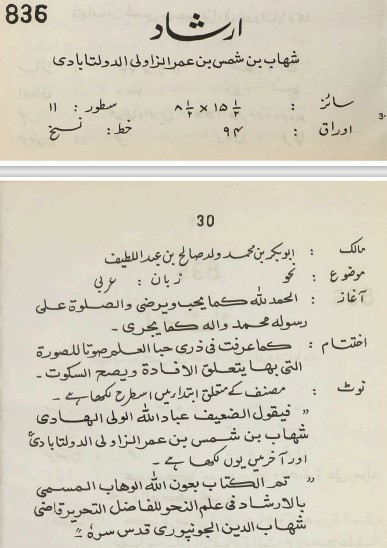 836
ارشاد
شهاب بن شمس بن عمر الزاولی الدولتابادی
سائز : ۱۵ ۱/۲ × ۸ ۱/۲ سطور : ۱۱
اوراق : ۹۴ خط : نسخ
30
مالک : ابوبکر بن محمد ولد صالح بن عبد اللطیف
موضوع : نحو زبان : عربی
آغاز : الحمد لله کما یحب ویرضی والصلوة علی
رسوله محمد واله کما یجری ۔
اختتام : کما عرفت فی ذری حبا العلم صوتا للصورة
التی بها یتعلق الافادة ویصح السکوت ۔
نوٹ : مصنف کے متعلق ابتدا میں اسطرح لکھا ہے ۔
" فیقول الضعیف عباد الله الولی الهادی
شهاب بن شمس بن عمر الزاولی الدولتابادی"
اور آخر میں یوں لکھا ہے ۔
" تم الکتاب بعون الله الوهاب المسمی
بالارشاد فی علم النحو للفاضل التحریر قاضی
شهاب الدین الجونپوری قدس سره "